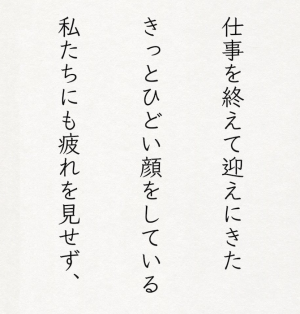 仕事を終えて迎えにきた
きっとひどい顔をしている
私たちにも疲れを見せず、